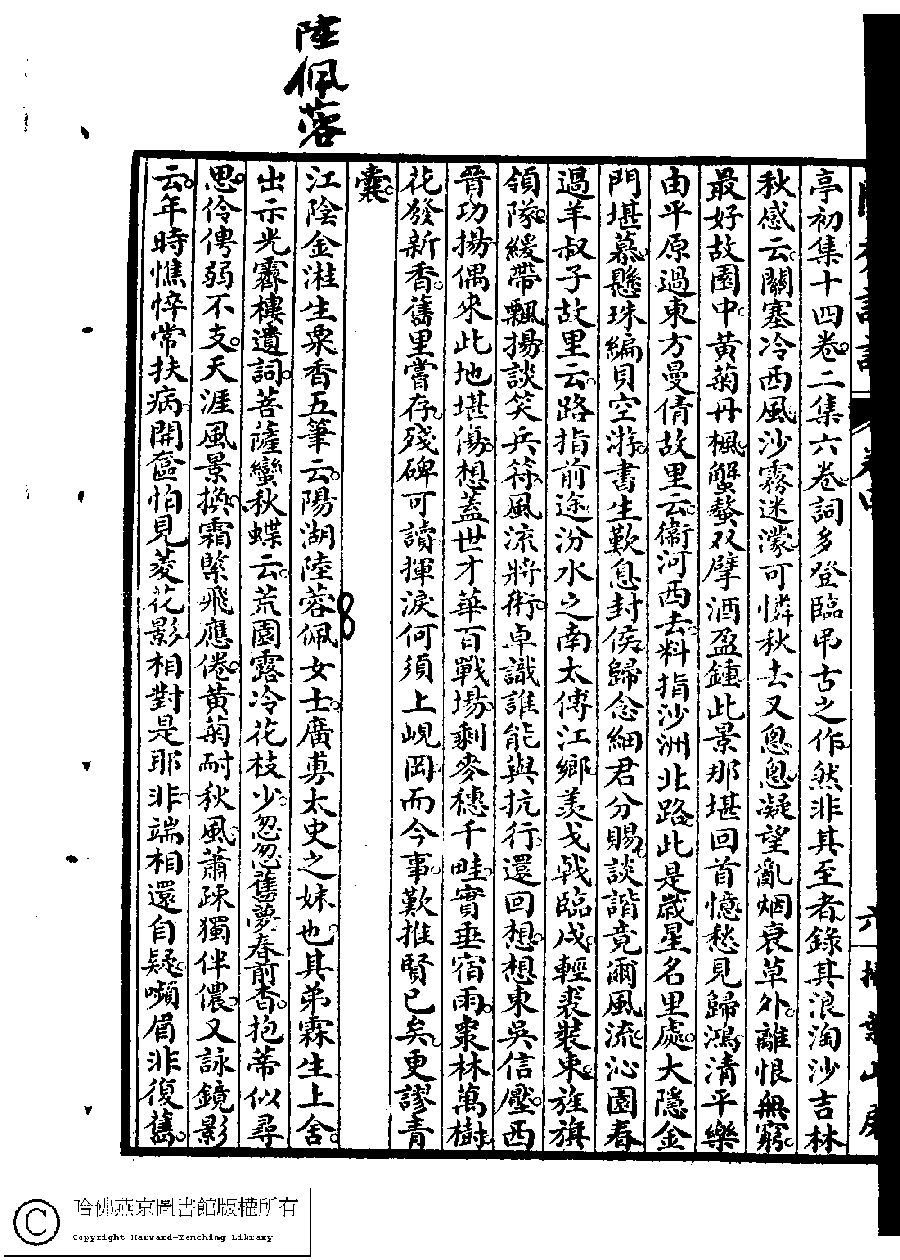 陸佩蓉
亭初集十四卷二集六卷詞多登臨弔古之作然非其至者錄其浪淘沙吉林
秋感云關塞冷西風沙霧迷濛可憐秋去又怱怱凝望亂烟衰草外離恨無窮
最好故園中黃菊丹楓蟹螯双擘酒盈鍾此景那堪回首憶愁見歸鴻清平樂
由平原過東方曼倩故里云衞河西去料指沙洲北路此是歲星名里處大隱金
門堪慕懸珠編貝空游書生歎息封侯歸念細君分賜談諧竟爾風流沁園春
過羊叔子故里云路指前途汾水之南太傅江鄉羨戈戟臨戍輕裘裝東旌旗
領隊緩帶飄揚談笑兵符風流將術卓識誰能與抗行還回想想東吳信壓西
晉功揚偶來此地堪傷想蓋世才華百戰場剩麥穗千畦實垂宿雨棗林萬樹
花發新香舊里嘗存殘碑可讀揮淚何須上峴岡而今事歎推賢已矣更謬青
囊
江陰金溎生粟香五筆云陽湖陸蓉佩女士廣旉太史之妹也其弟霖生上舍
出示光霽樓遺詞菩薩蠻秋蝶云荒園露冷花枝少忽忽舊夢春前杳抱蒂似尋
思伶俜弱不支天涯風景換霜緊飛應倦黃菊耐秋風蕭疎獨伴儂又詠鏡影
云年時憔悴常扶病開奩怕見菱花影相對是耶非端相還自疑嚬眉非復舊
卷四
六
8
哈佛燕京圖書館版權所有
Copyright Harvard-Yenching Library